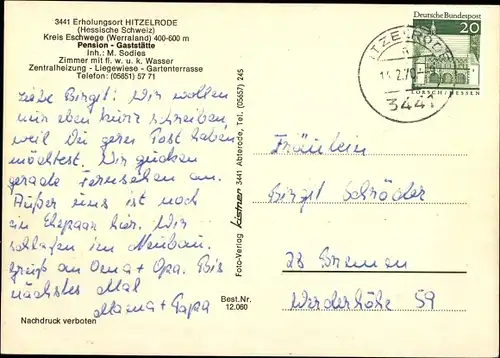 3441 Erholungsort HITZELRODE
(Hessische Schweiz)
Kreis Eschwege (Werraland) 400-600 m
Pension - Gaststätte
Inh.: M. Sodies
Zimmer mit fl. w. u. k. Wasser
Zentralheizung - Liegewiese - Gartenterrasse
Telefon: (05651) 57 71
Liebe Birgit! Wir wollen
nur eben kurz schreiben,
weil Du gern Post haben
möchtest. Wir gucken
gerade Fernsehen an.
Außer uns ist noch
ein Ehepaar hier. Wir
schlafen im Neubau.
Gruß an Oma + Opa. Bis
nächstes Mal
Mama + Papa
Nachdruck verboten
Best.Nr.
12.060
Foto-Verlag Kistner 3441 Abterode, Tel. (05657) 245
Deutsche Bundespost
20
LORSCH/HESSEN
HITZELRODE
3441
Fräulein
Birgit Schröder
28 Bremen
Werderhöhe 59